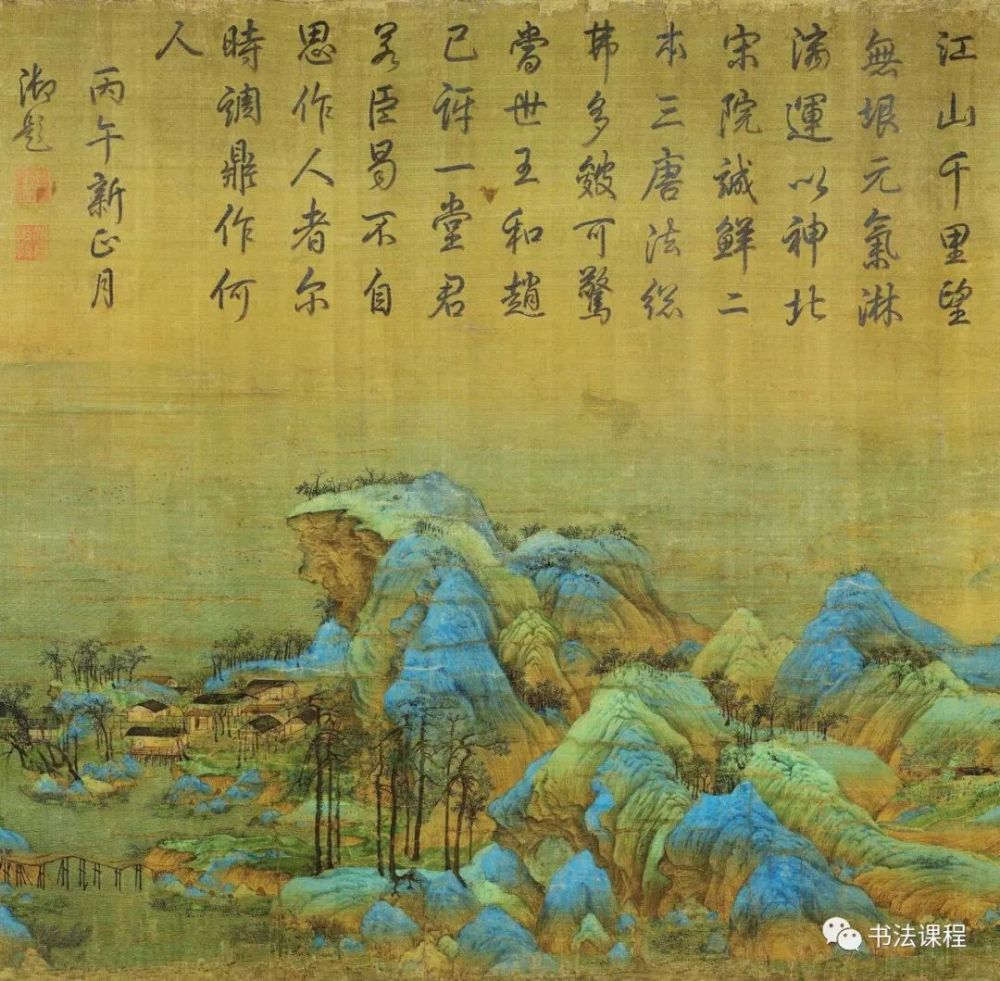 江山千里望
無垠元氣淋
漓運以神北
宋院誠鮮二
本三唐法総
弗多皴可驚
當世王和趙
已訝一堂君
若臣曷不自
思作人者尔
時調鼎作何
人
丙午新正月
御題
书法课程